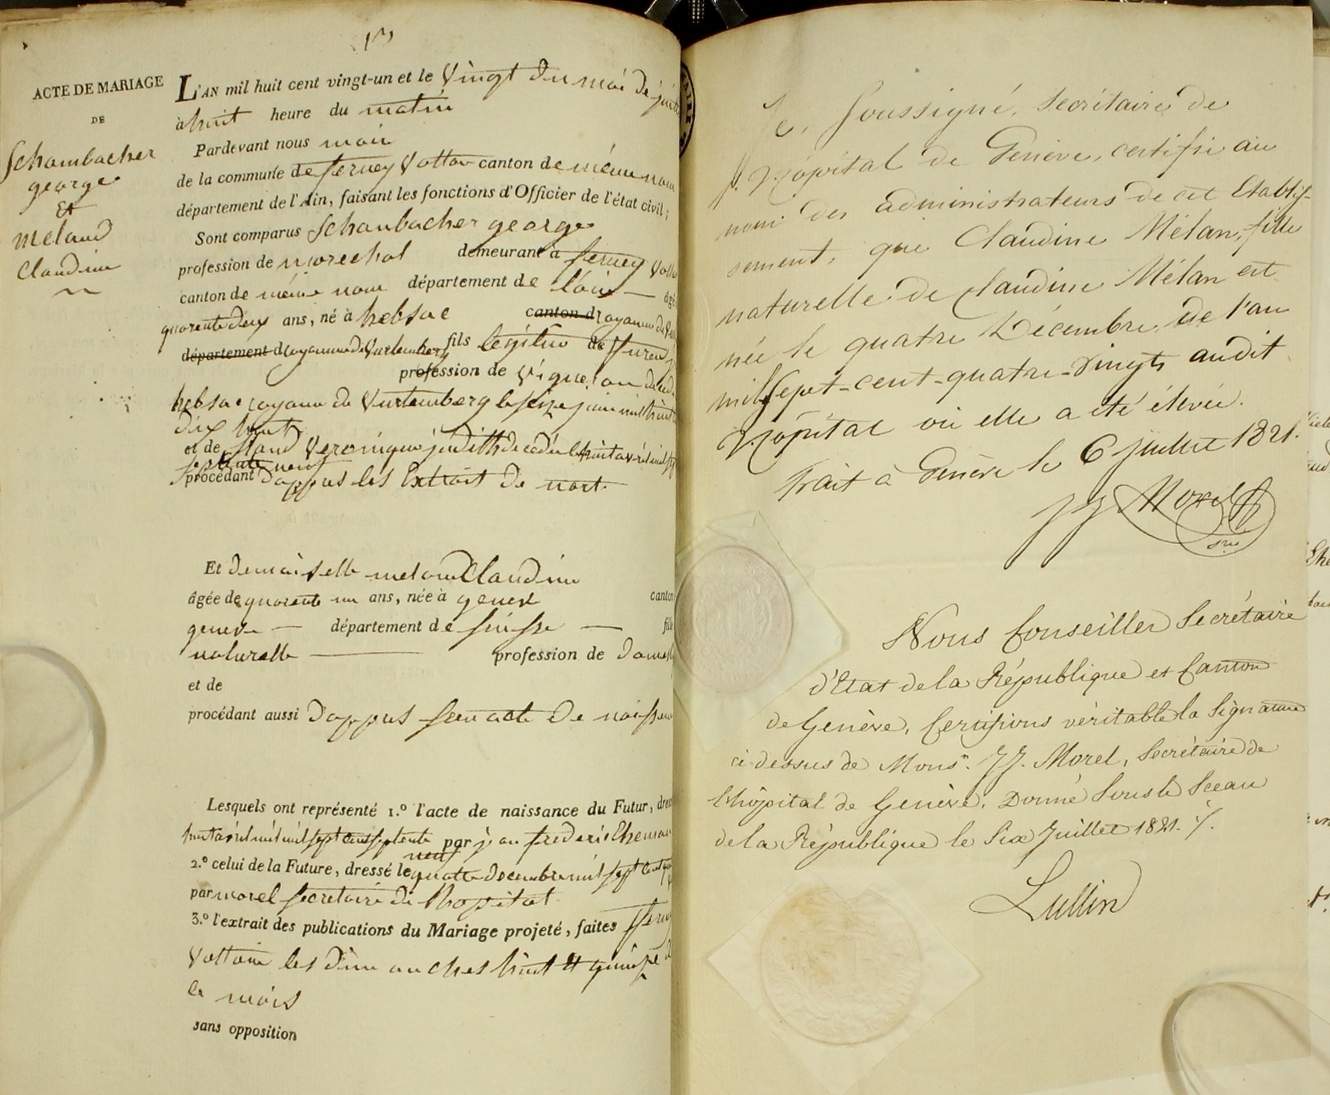 ACTE DE MARIAGE
DE
Schambacher
george
Et
meland
Claudine
L'AN mil huit cent vingt-un et le vingt du mois de
à huit heure du matin
Pardevant nous maire
de la commune de ferney Voltaire canton de même nom
département de l'Ain, faisant les fonctions d'Officier de l'état civil;
Sont comparus Schanbacher george
profession de marechal demeurant à ferney
canton de même nom département de
quarente deux ans, né à hebsac canton d royaume de
département d royaume de Vurtemberg fils légitime de
profession de vigneron
hebsac royaume de Vurtemberg le seize juin mil huit
dix huit
et de Veronique judith décédée le huit avril mil
septante neuf
procédant d'appres les Extrait de mort.
Et demoiselle meland Claudine
âgée de quarente un ans, née à geneve canton
geneve département de suisse
naturelle profession de
et de
procédant aussi d'appres son acte de
Lesquels ont représenté 1.° l'acte de naissance du Futur,
huit avril mil sept cent septente neuf par jean frederic
2.° celui de la Future, dressé le quatre decembre mil sept cent
par morel secretaire de l'hopital
3.° l'extrait des publications du Mariage projeté, faites
Voltaire les dimanches huit et quinze
ce mois
sans opposition
Je, soussigné, secrétaire de
l'Hôpital de Genève, certifie au
nom des administrateurs de cet Etablis-
sement, que Claudine Mélan, fille
naturelle de Claudine Mélan est
née le quatre Décembre de l'an
mil sept-cent-quatre-vingts audit
Hôpital où elle a été élevée.
Fait à Genève le 6 juillet 1821.
JJ Morel
sre
Nous Conseiller Secrétaire
d'Etat de la République et Canton
de Genève, Certifions véritable la Signature
ci dessus de Monsr. JJ. Morel, Secrétaire de
l'hôpital de Genève. Donné sous le Sceau
de la République le Six Juillet 1821. /.
Lullin